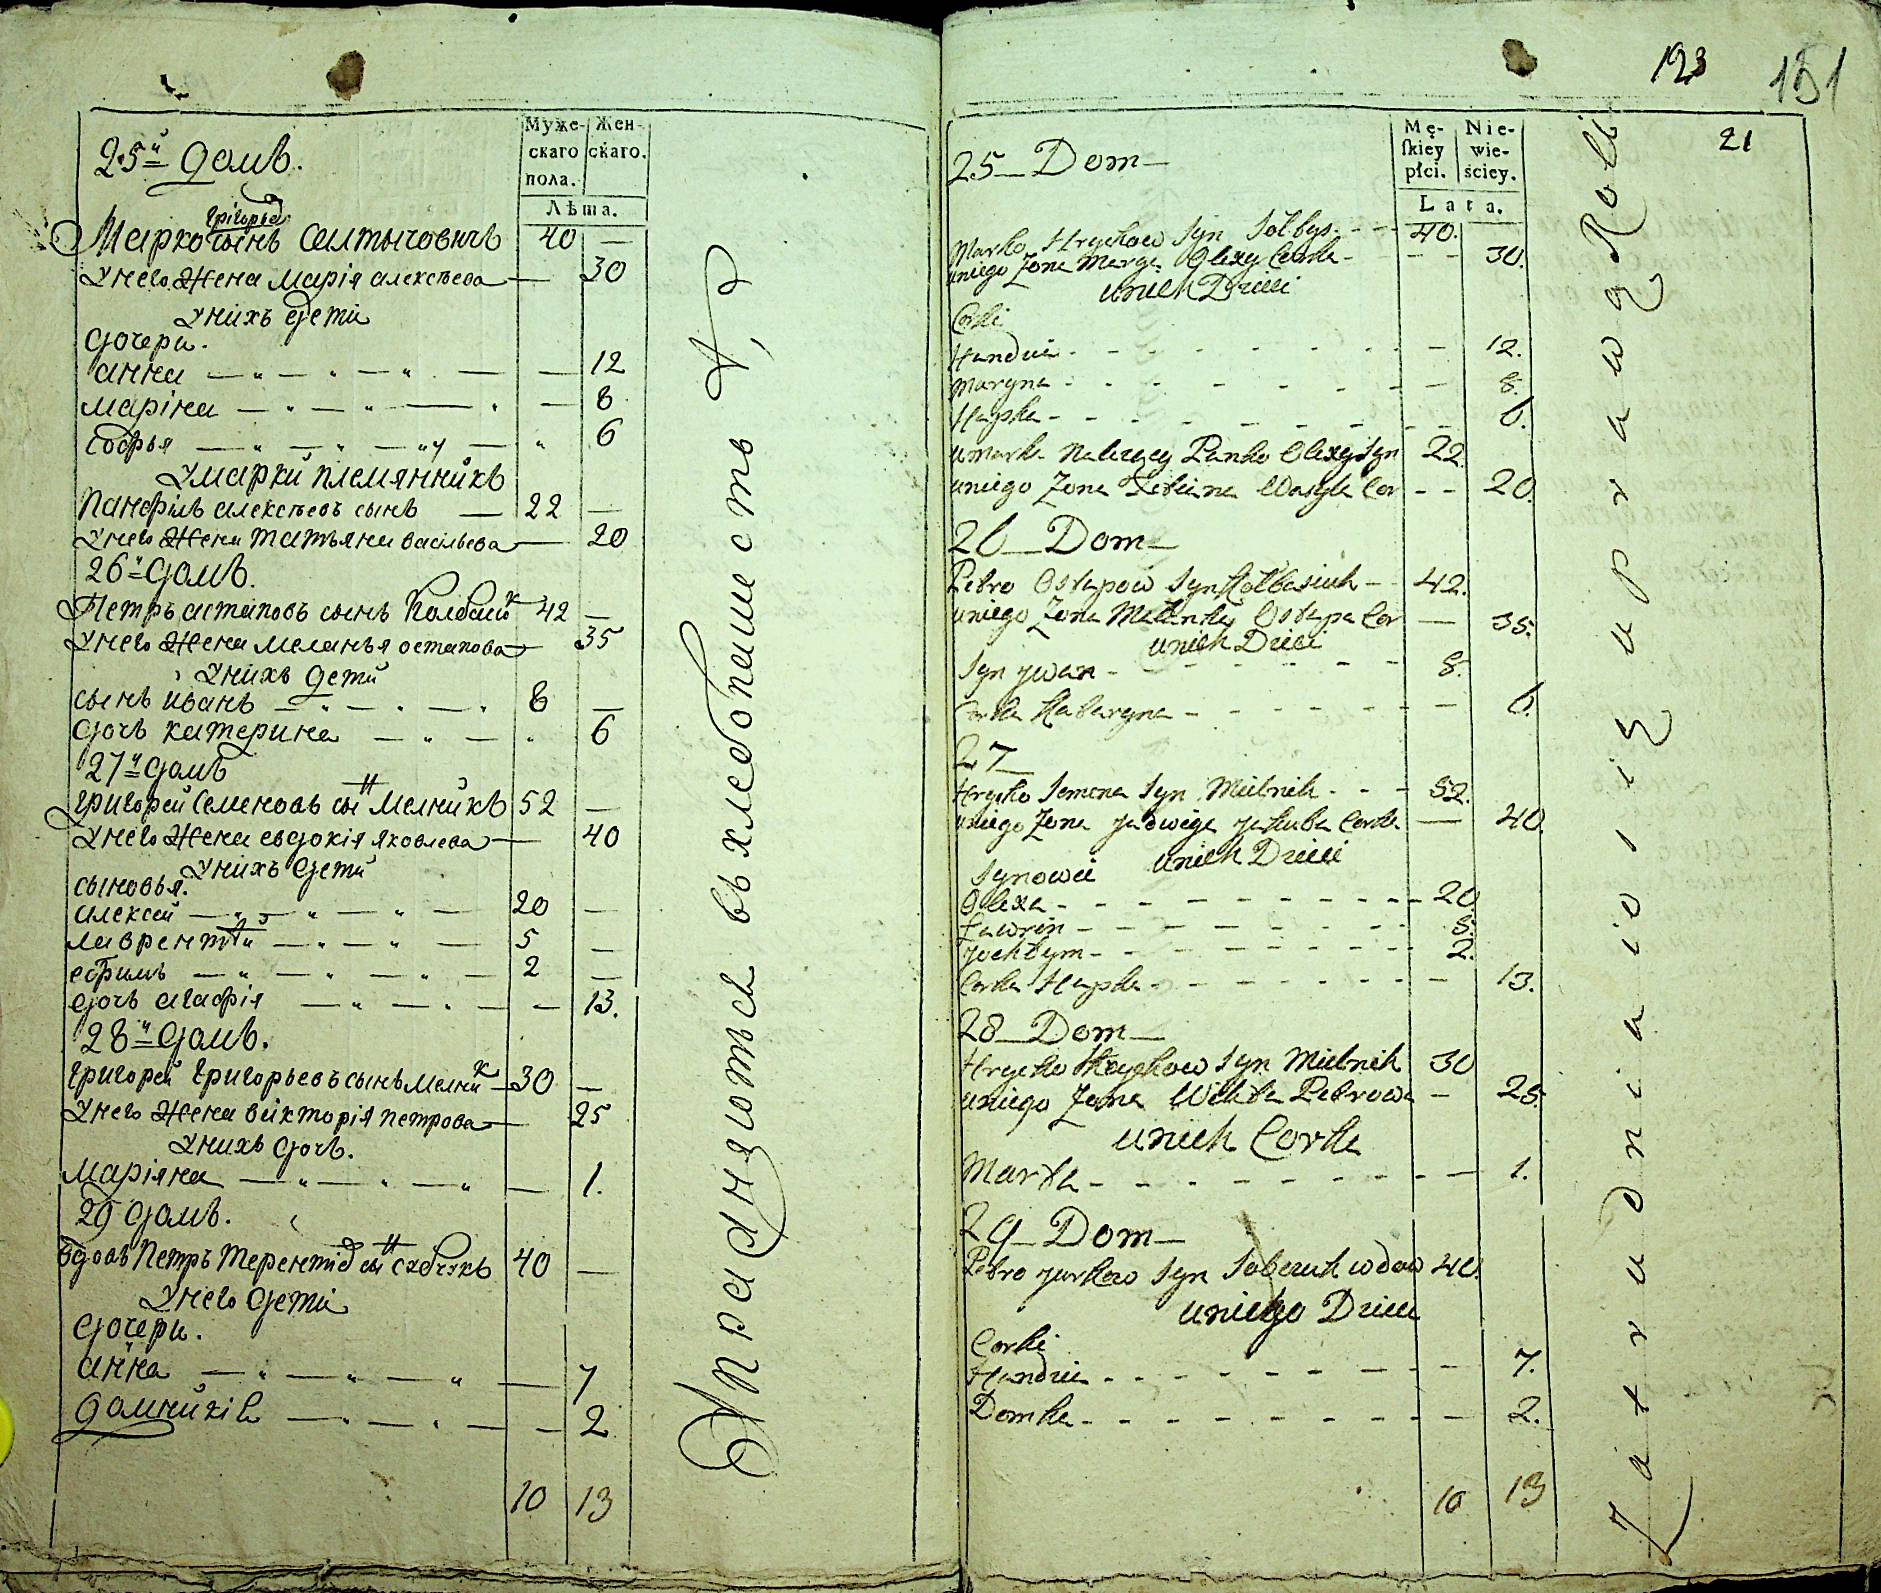 Муже-
скаго
пола.
Жен-
скаго.
Лѣта.
25й домъ.
Григорьевъ
Марко сынъ Салтысовичъ 40 —
Унего жена Марія алексѣева — 30
Унихъ дети
дочери.
анна — 12
маріна — 8
софья — 6
Умарки племянникъ
Панфилъ алексѣевъ сынъ — 22 —
Унего жена татьяна васильева — 20
26й домъ.
Петръ астаповъ сынъ 42 —
Унего жена меланья остапова — 35
Унихъ дети
сынъ иванъ — 8 —
дочь катерина — 6
27й домъ
григорей Семеновъ сынъ Мелникъ 52 —
Унего жена евдокія яковлева — 40
Унихъ дети
сыновья.
алексей — 20 —
лаврентій — 5 —
ефимъ — 2 —
дочь агафія — 13.
28й домъ.
григорей григорьевъ сынъ мелникъ — 30 —
Унего жена викторія петрова — 25
Унихъ дочь.
Маріяна — 1.
29 домъ.
вдовъ Петръ терентіевъ сынъ 40 —
Унего дети
дочери.
анна — 7
домникія — 2
10 13
Упражняются въ хлебопашестве
123
151
21
Mę-
ſkiey
płci.
Nie-
wie-
ściey.
Lata.
25 — Dom —
Marko Hryckow Syn - - - 40.
uniego Zona Marya Olexy Corka - - - 30.
unich Dzieci
Corki
Handzia - - - 12.
Maryna - - - 8.
Hapka - - - 6.
umarka Panko Olexy Syn 22.
uniego Zona Tetiana Wasyla Cor - - 20.
26 — Dom —
Petro Ostapow Syn Kołbasiuk - - 42.
uniego Zona Malanka Ostapa Cor — 35.
unich Dzieci
Syn jwan - - - 8.
Corka Kataryna - - - 6.
27 —
Hrycko Semena Syn Mielnik - - - 52.
uniego Zona jadwiga jakuba Corka — 40.
unich Dzieci
Synowie
Olexa - - - 20.
Ławrin - - - 5.
juchtym - - - 2.
Corka Hapka - - - 13.
28 — Dom —
Hrycko Hryckow Syn Mielnik 30
uniego Zona Wikta Petrowa — 25.
unich Corka
Marta - - - 1.
29 — Dom —
Petro jurkow Syn wdow 40.
uniego Dzieci
Corki
Handzia - - - 7.
Domka - - - 2.
10 13
Zatrudniaiosię uprawą Roli